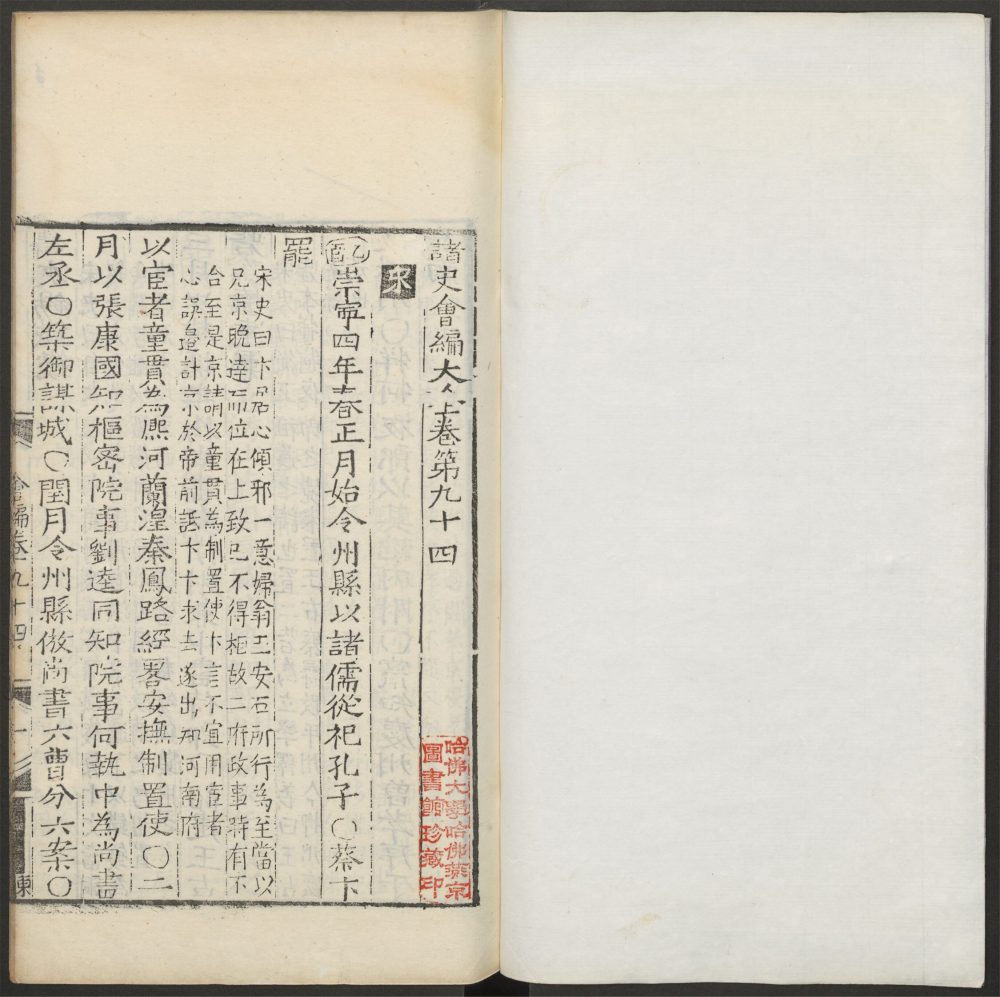 諸史會編大全卷第九十四
宋
乙酉崇寧四年春正月始令州縣以諸儒從祀孔子〇蔡卞
罷
宋史曰卞居心傾邪一意婦翁王安石所行為至當以
兄京晚達而位在上致已不得相故二府政事時有不
合至是京請以童貫為制置使卞言不宜用宦者
必誤邉計京於帝前詆卞卞求去遂出知河南府
以宦者童貫為熈河蘭湟秦鳳路經畧安撫制置使〇二
月以張康國知樞密院事劉逵同知院事何執中為尚書
左丞〇築御謀城〇閏月令州縣倣尚書六曹分六案〇
會編卷九十四
一
東
哈佛大學哈佛燕京
圖書館珍藏印